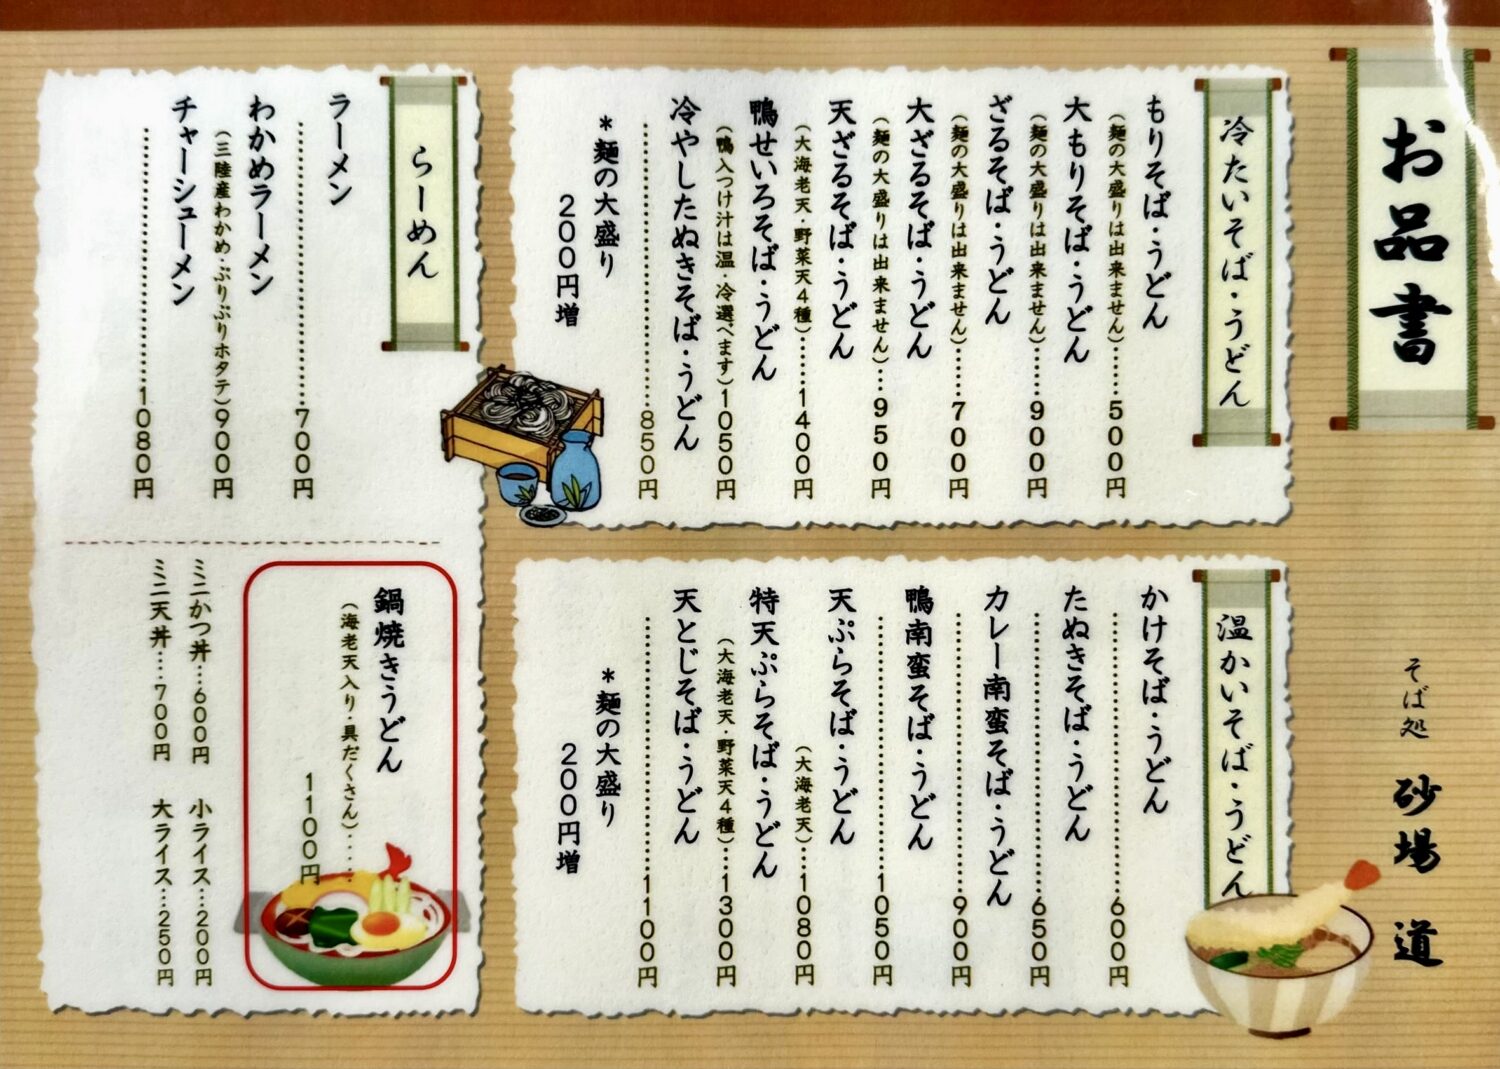 お品書
そば処 砂場 道
冷たいそば・うどん
もりそば・うどん
(麺の大盛りは出来ません)……500円
大もりそば・うどん
(麺の大盛りは出来ません)……900円
ざるそば・うどん
(麺の大盛りは出来ません)……700円
大ざるそば・うどん
(麺の大盛りは出来ません)…950円
天ざるそば・うどん
(大海老天・野菜天4種)……1400円
鴨せいろそば・うどん
(鴨入つけ汁は温・冷選べます)1050円
冷やしたぬきそば・うどん
……………………850円
*麺の大盛り
200円増
温かいそば・うどん
かけそば・うどん
……………………600円
たぬきそば・うどん
……………………650円
カレー南蛮そば・うどん
……………………900円
鴨南蛮そば・うどん
……………………1050円
天ぷらそば・うどん
(大海老天)…1080円
特天ぷらそば・うどん
(大海老天・野菜天4種)…1300円
天とじそば・うどん
……………………1100円
*麺の大盛り
200円増
らーめん
ラーメン
……………………700円
わかめラーメン
(三陸産わかめ・ぷりぷりホタテ)900円
チャーシューメン
……………………1080円
鍋焼きうどん
(海老天入り・具だくさん)……
1100円
ミニかつ丼…600円 小ライス…200円
ミニ天丼…700円 大ライス…250円